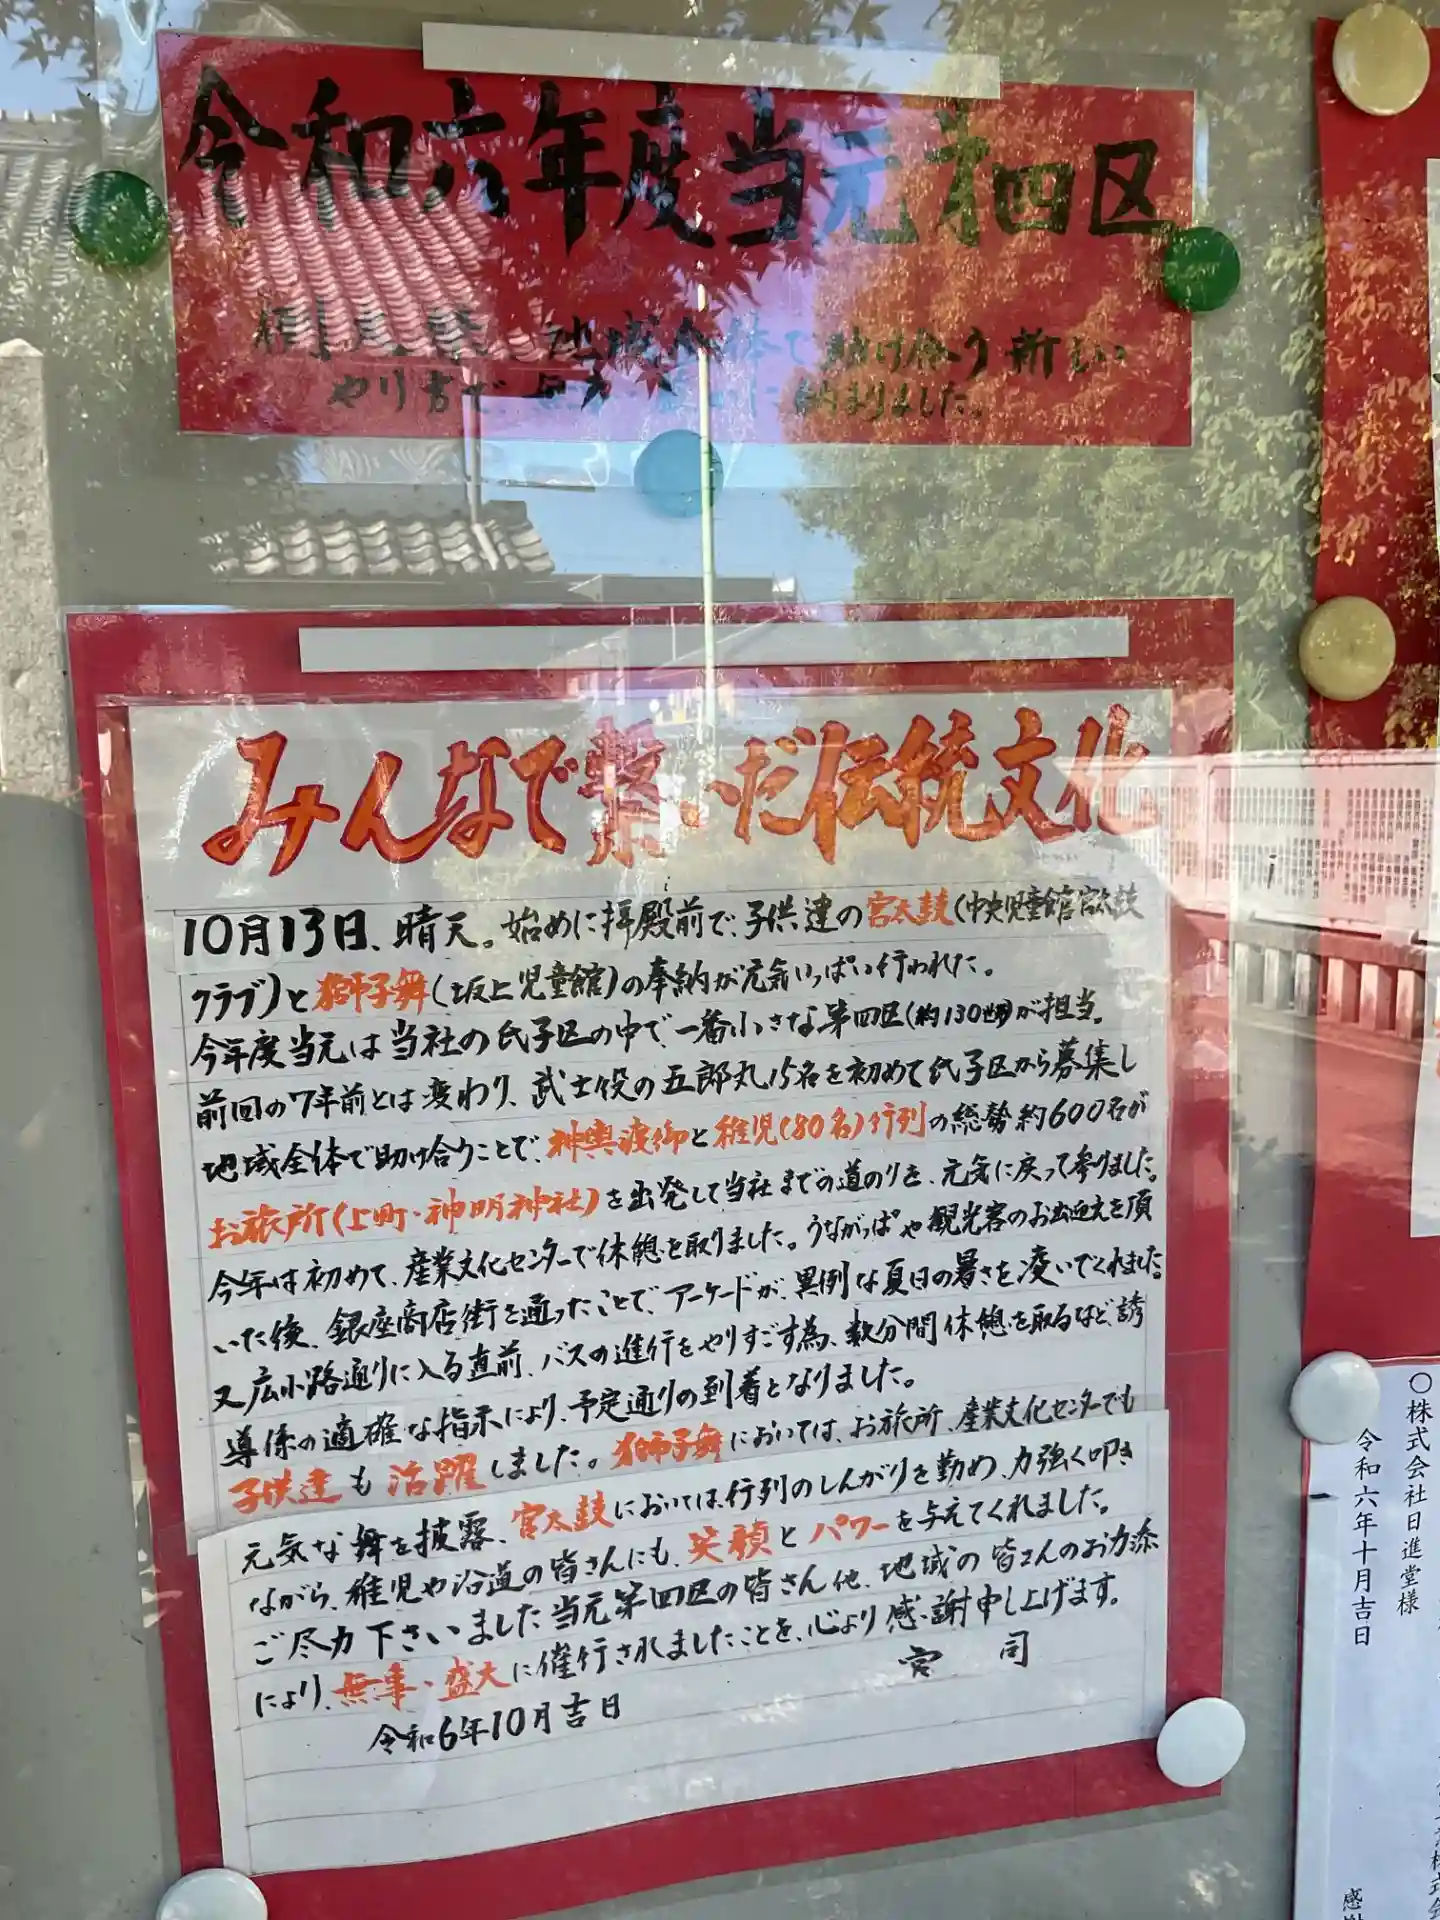 令和六年度当元才四区
地域全体で助け合う新しい
やり方で 納まりました。
みんなで繋いだ伝統文化
10月13日、晴天。始めに拝殿前で、子供達の宮太鼓(中央児童館宮太鼓
クラブ)と獅子舞(坂上児童館)の奉納が元気いっぱい行われた。
今年度当元は当社の氏子区の中で、一番小さな第四区(約130世帯)が担当。
前回の7年前とは変わり、武士役の五郎丸15名を初めて氏子区から募集し
地域全体で助け合うことで、神輿渡御と稚児(80名)行列の総勢約600名が
お旅所(上町・神明神社)を出発して当社までの道のりを、元気に戻って参りました。
今年は初めて、産業文化センターで休憩を取りました。うながっぱや観光客のお出迎えを頂
いた後、銀座商店街を通ったことで、アーケードが、異例な夏日の暑さを凌いでくれました。
又広小路通りに入る直前、バスの進行をやりすごす為、数分間休憩を取るなど、誘
導係の適確な指示により、予定通りの到着となりました。
子供達も活躍しました。獅子舞においては、お旅所、産業文化センターでも
元気な舞を披露、宮太鼓においては、行列のしんがりを勤め、力強く叩き
ながら、稚児や沿道の皆さんにも、笑顔とパワーを与えてくれました。
ご尽力下さいました当元第四区の皆さん他、地域の皆さんのお力添
により、無事・盛大に催行されましたことを、心より感謝申し上げます。
宮 司
令和6年10月吉日
〇株式会社日進堂様
令和六年十月吉日